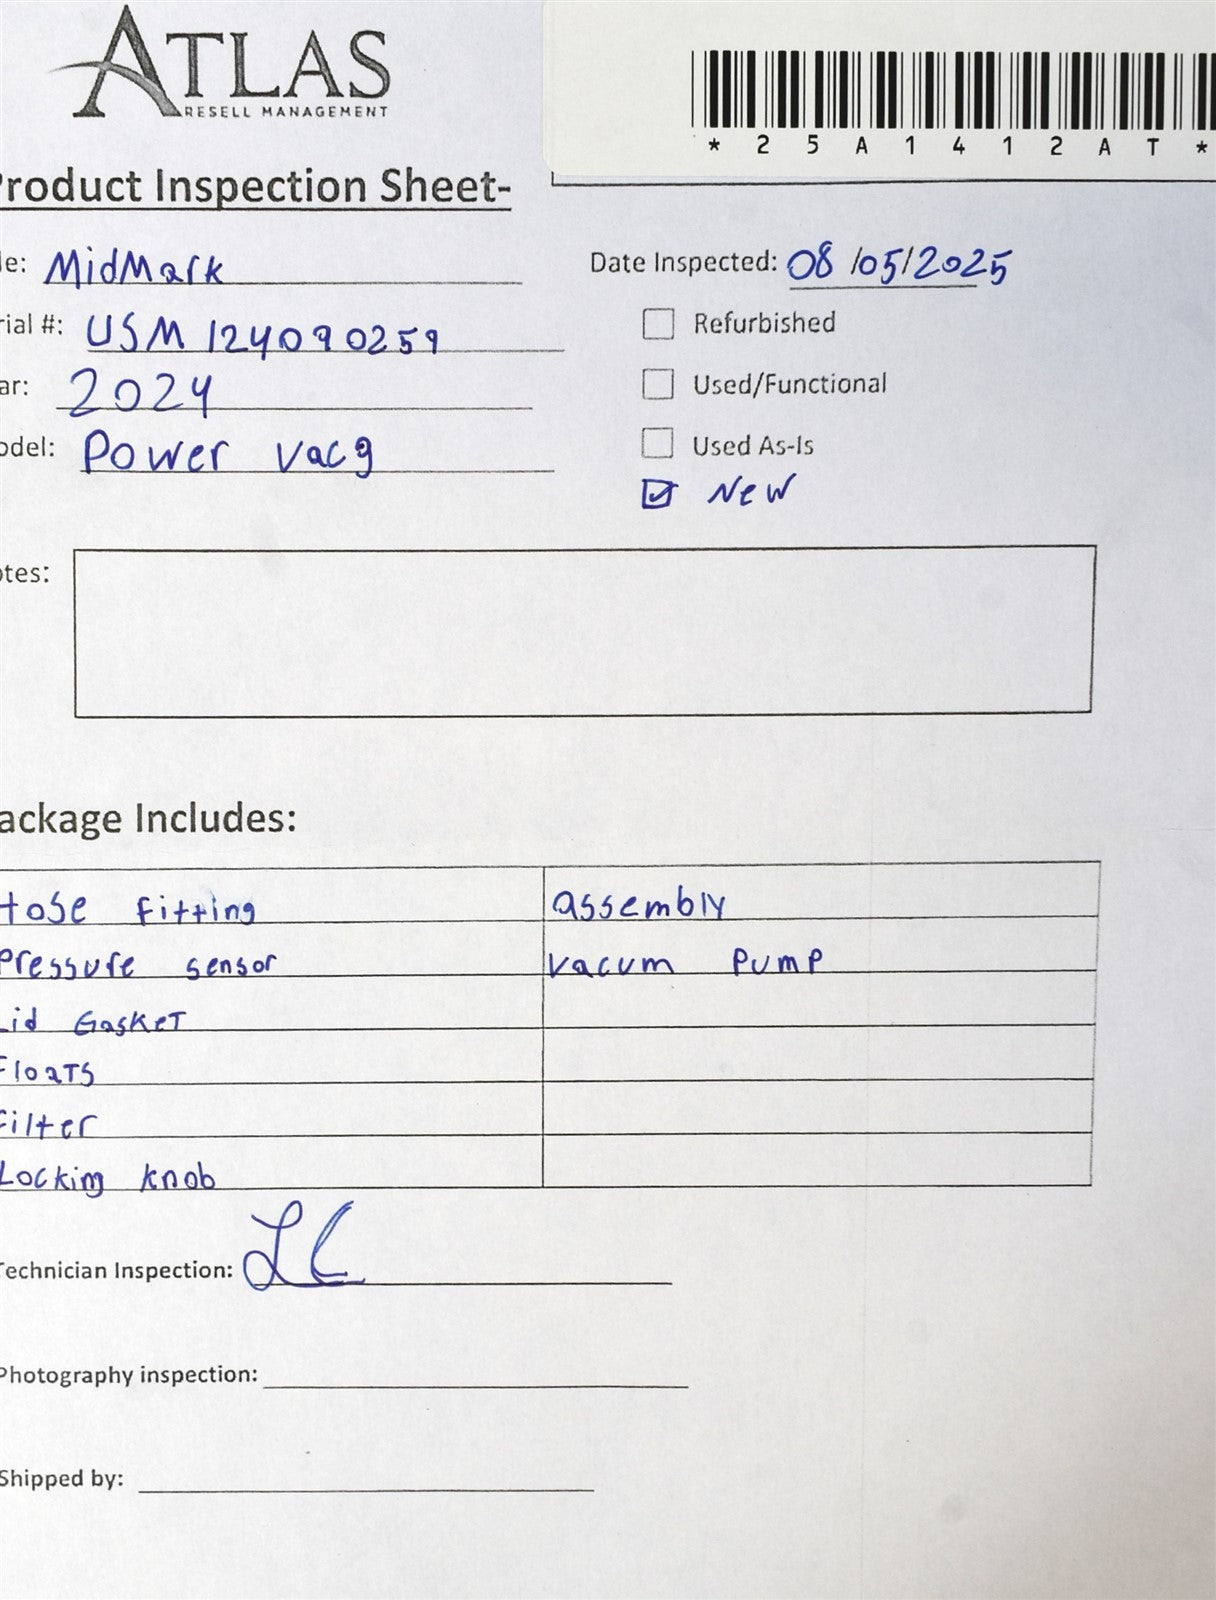 ATLAS
RESELL MANAGEMENT
*25A1412AT*
Product Inspection Sheet-
le: MidMark
Date Inspected: 08/05/2025
rial #: USM124090259
Refurbished
ar: 2024
Used/Functional
odel: Power vac9
Used As-Is
New
otes:
ackage Includes:
Hose Fitting assembly
Pressure sensor vacum pump
Lid GaskeT
FloaTS
Filter
Locking knob
Technician Inspection: LC
Photography inspection:
Shipped by: